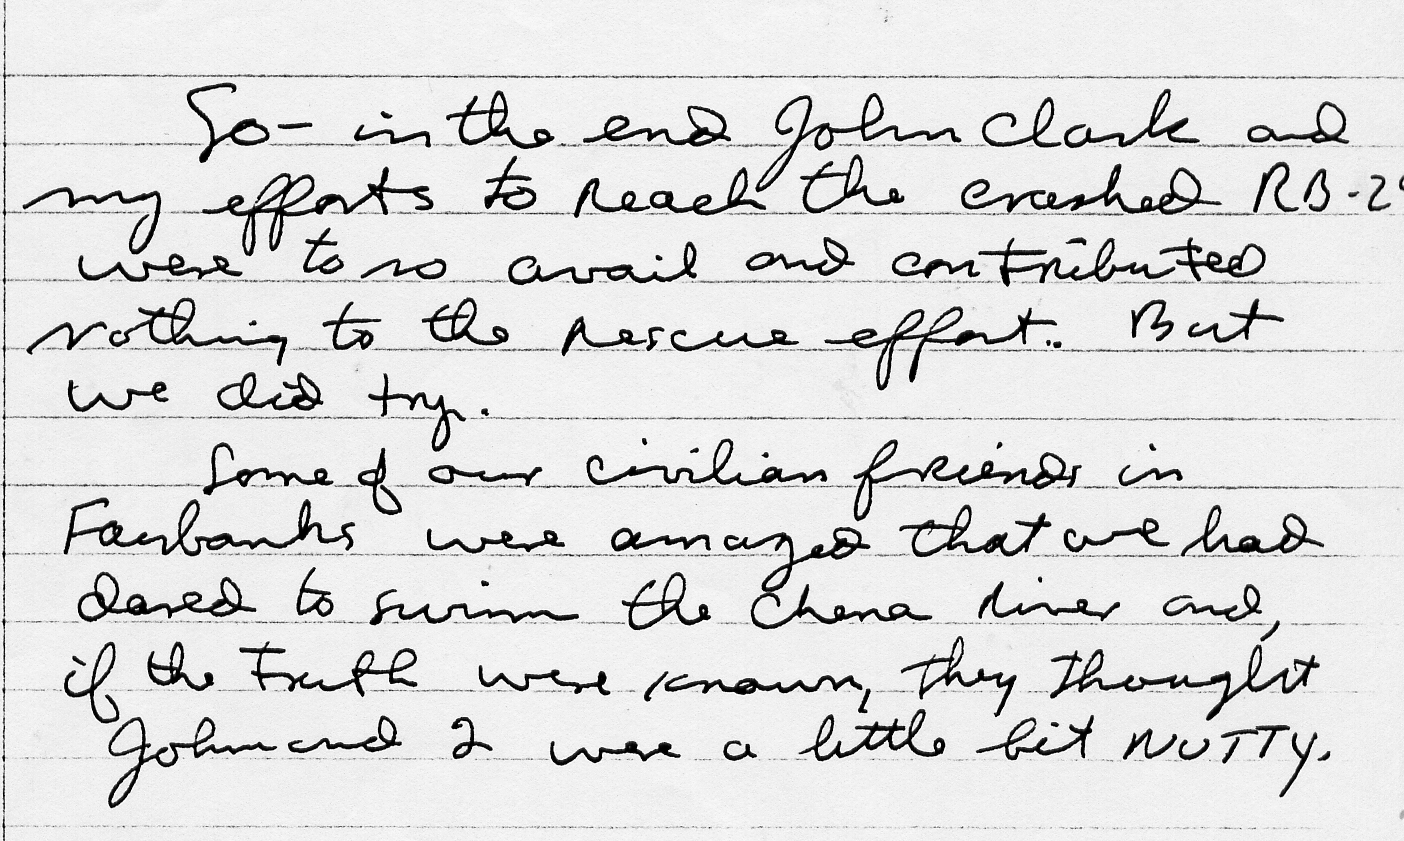 So- in the end John Clark and
my efforts to reach the crashed RB-29
were to no avail and contributed
nothing to the rescue effort.. But
we did try.
Some of our civilian friends in
Fairbanks were amazed that we had
dared to swim the Chena River and,
if the truth were known, they thought
John and I were a little bit NUTTY.